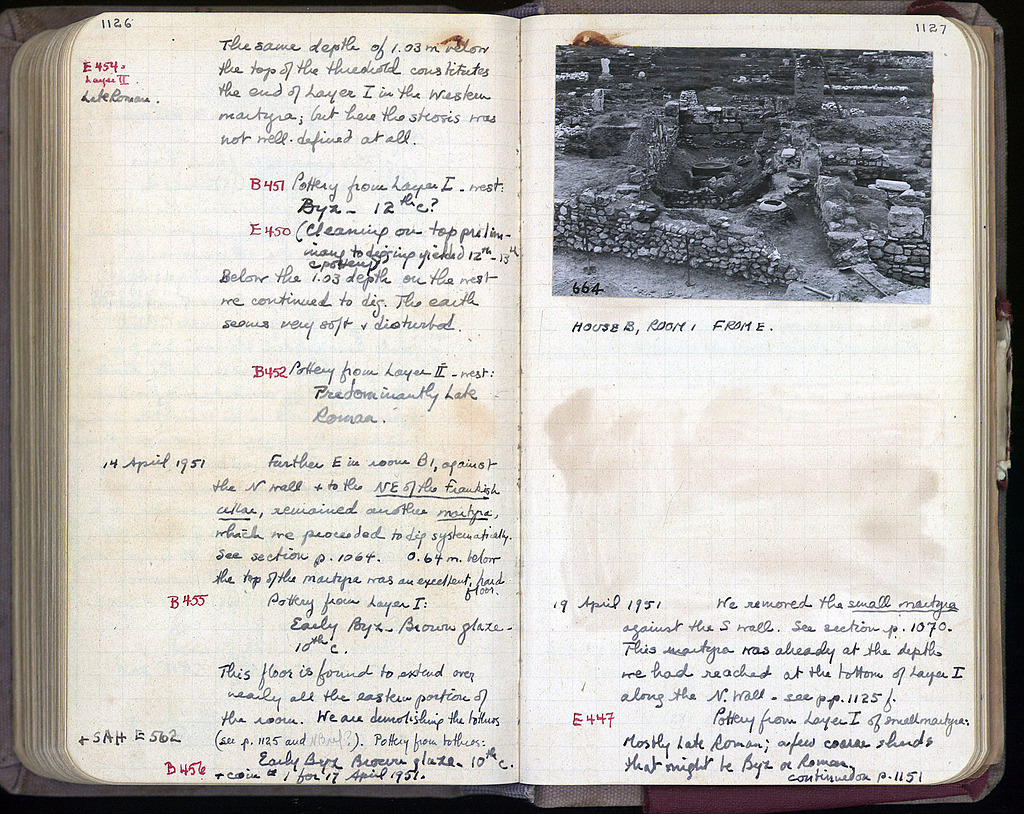 1126
The same depth of 1.03 m below
E 454.
the top of the threshold constitutes
Layer II.
the end of Layer I in the Western
Late Roman.
martyra; but here the strosis was
not well-defined at all.
B451 Pottery from Layer I - west:
Byz - 12th c?
E 450 (Cleaning on top prelim-
inary to digging yielded 12th-13th
c pottery)
Below the 1.03 depth on the west
we continued to dig. The earth
seems very soft & disturbed.
B452 Pottery from Layer II - west:
Predominantly Late
Roman.
14 April 1951 Further E in room B1, against
the N wall & to the NE of the Frankish
cellar, remained another martyra,
which we proceeded to dig systematically.
See section p. 1064. 0.64 m. below
the top of the martyra was an excellent, hard
floor.
B455 Pottery from Layer I:
Early Byz - Brown glaze -
10th c.
This floor is found to extend over
nearly all the eastern portion of
the room. We are demolishing the tothros
+ SAH E 562 (see p. 1125 and). Pottery from tothros:
B456 Early Byz Brown glaze - 10th c.
+ coin # 1 for 17 April 1951.
1127
664
HOUSE B, ROOM 1 FROM E.
19 April 1951 We removed the small martyra
against the S wall. See section p. 1070.
This martyra was already at the depths
we had reached at the bottom of Layer I
along the N. Wall - see pp. 1125 f.
E 447 Pottery from Layer I of small martyra:
Mostly Late Roman; a few coarse sherds
that might be Byz or Roman.
continued on p. 1151